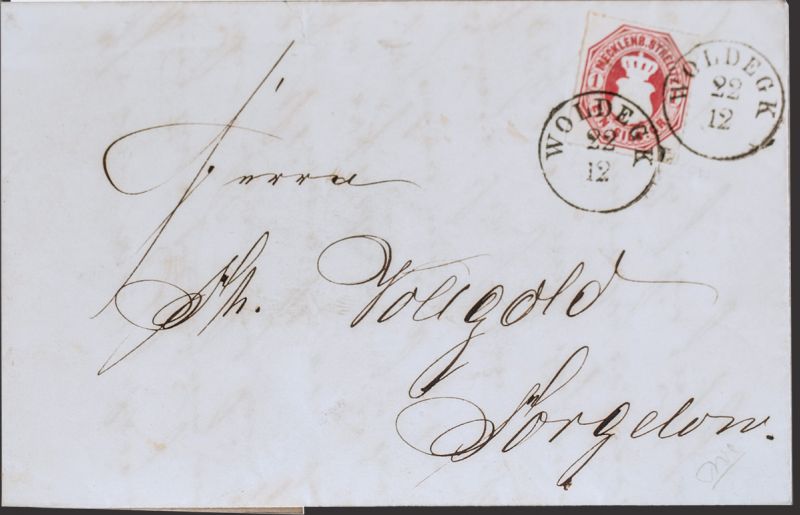 MECKLENB. STRELITZ
1
EIN SILBGR.
WOLDEGK
22
12
WOLDEGK
22
12
Herrn
Th. Vollgold
Torgelow.